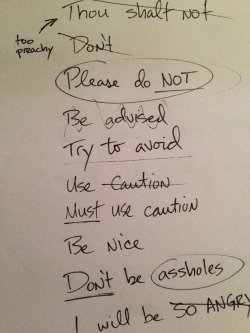 Thou shalt not
too preachy
Don't
Please do NOT
Be advised
Try to avoid
Use Caution
Must use caution
Be nice
Don't be assholes
I will be SO ANGRY